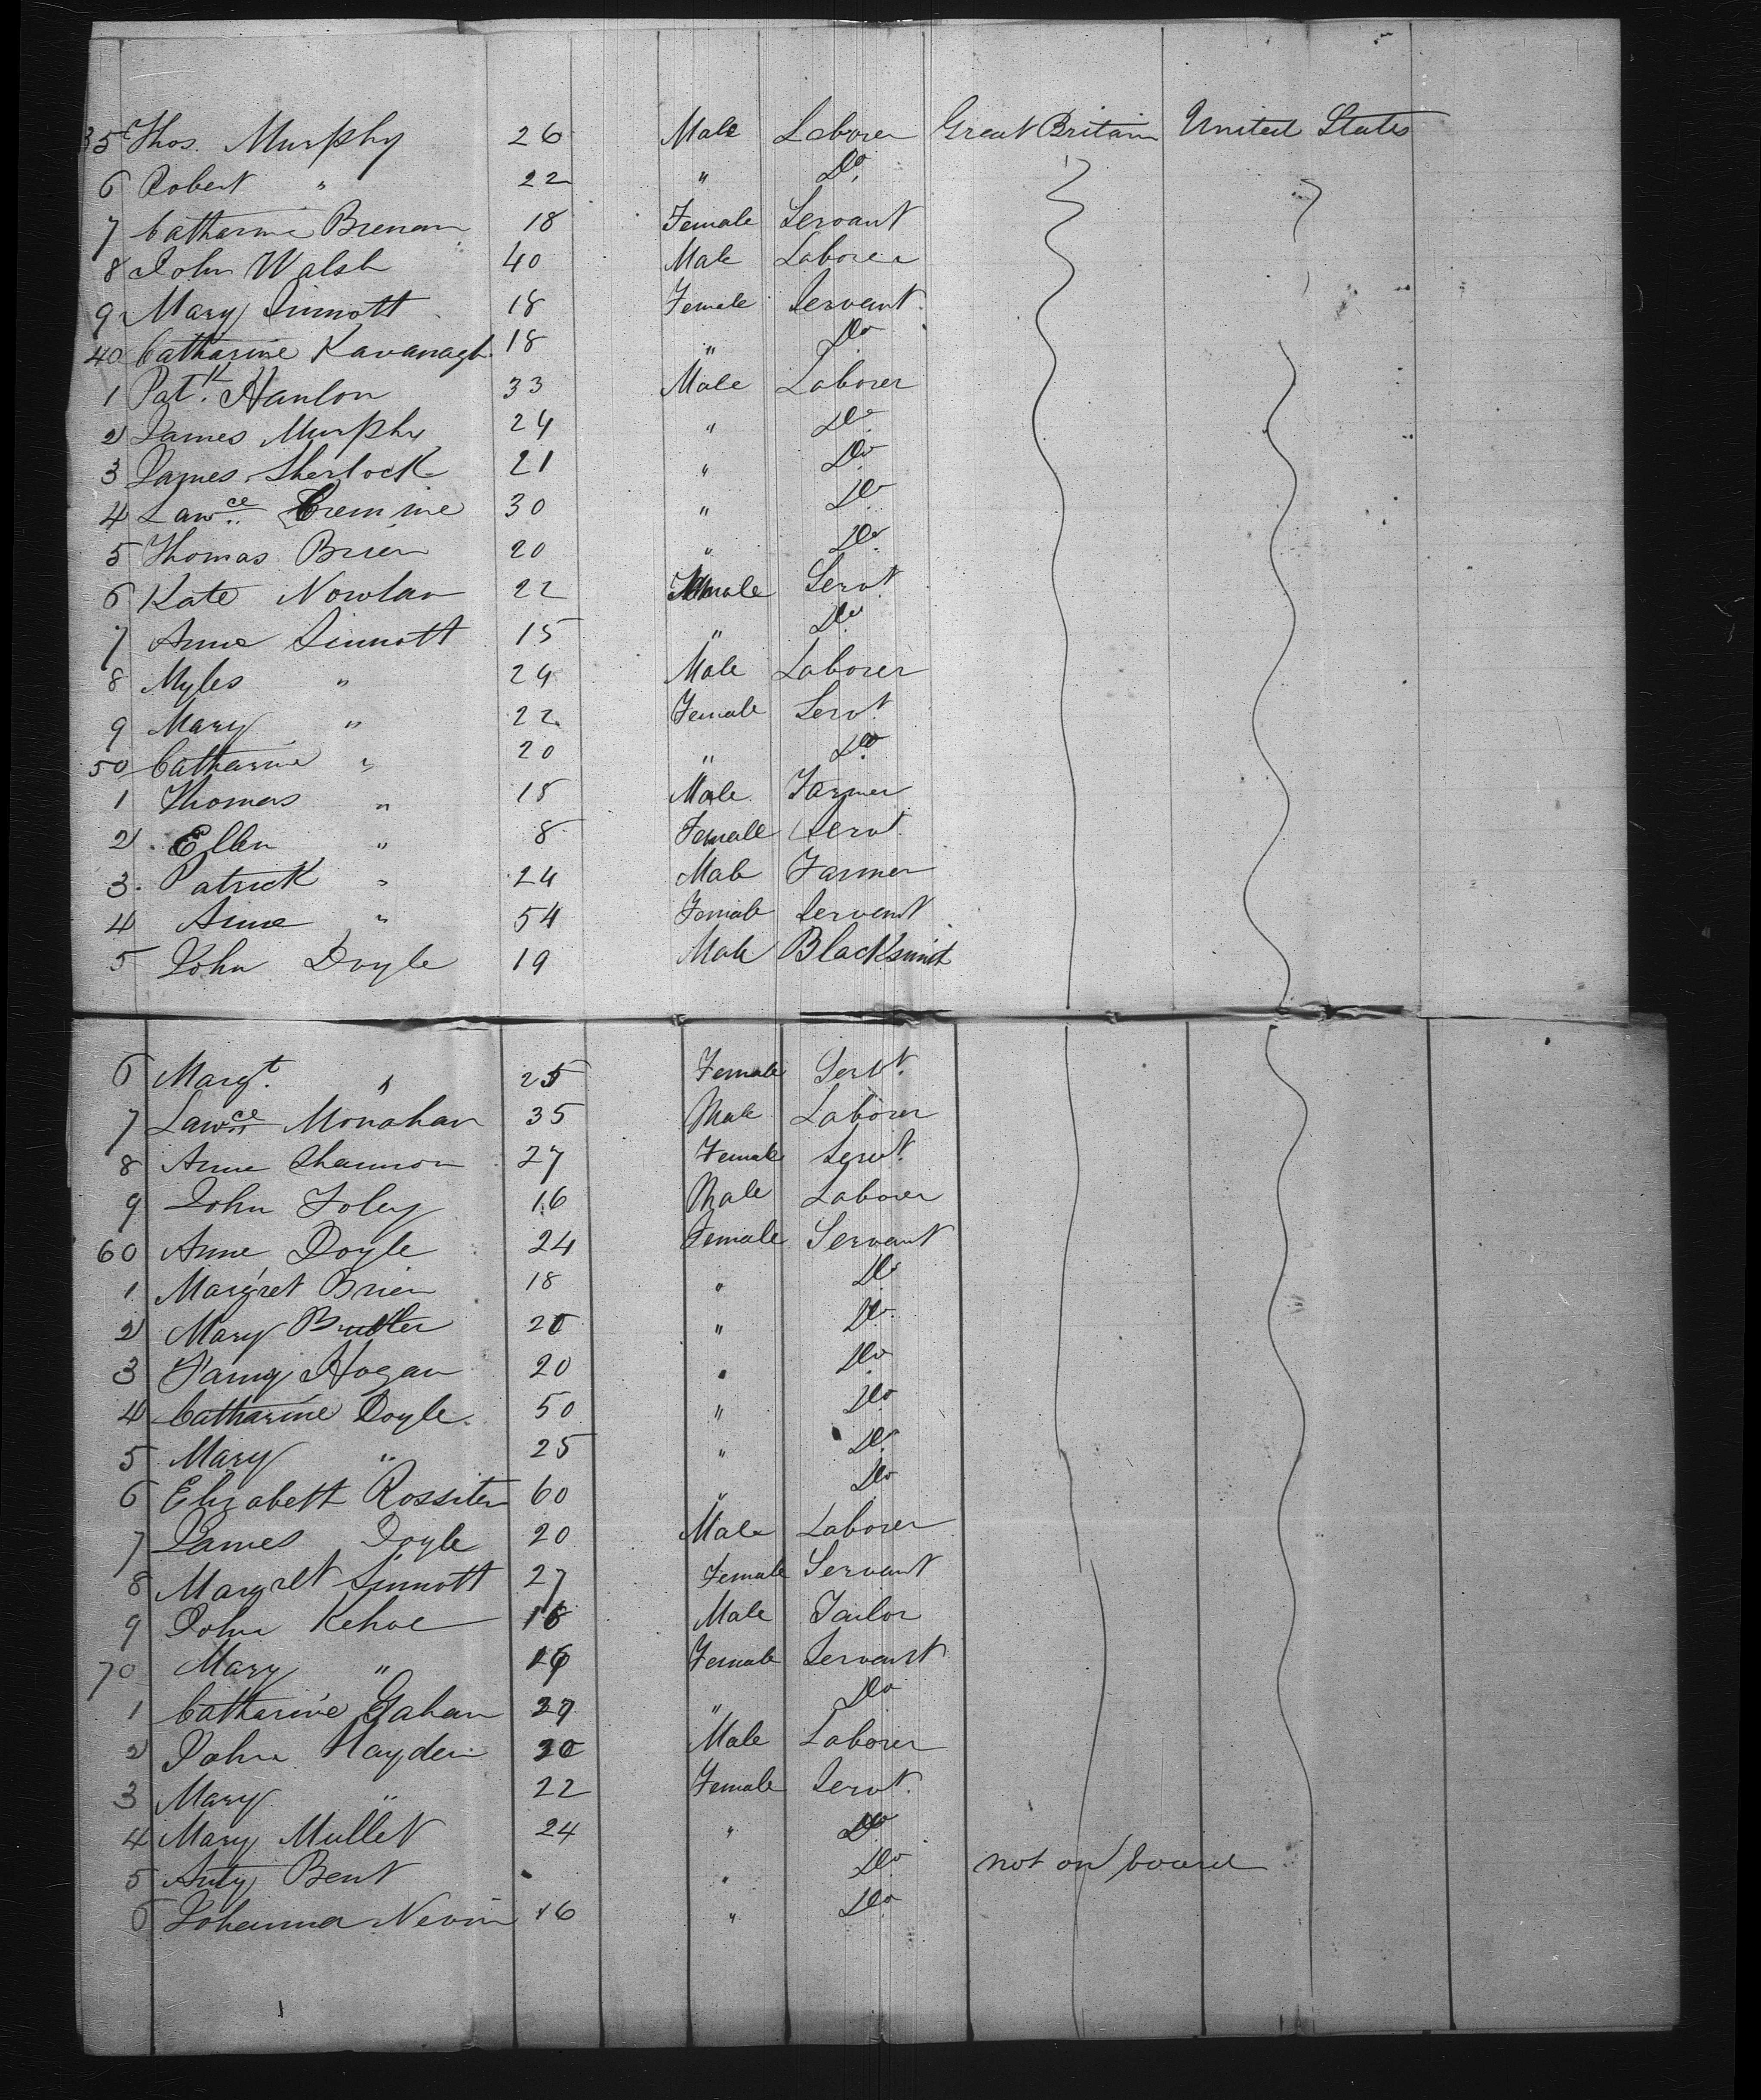 35 Thos. Murphy 26 Male Laborer Great Britain United States
6 Robert " 22 " Do.
7 Catharine Brenan 18 Female Servant
8 John Walsh 40 Male Laborer
9 Mary Sinnott 18 Female Servant
40 Catharine Kavanagh 18 " Do
1 Patk. Hanlon 33 Male Laborer
2 James Murphy 24 " Do
3 James Sherlock 21 " Do
4 Lawce 30 " Do
5 Thomas Brien 20 " Do
6 Kate Nowlan 22 Female Servt.
7 Anne Sinnott 15 " Do
8 Myles " 24 Male Laborer
9 Mary " 22 Female Servt.
50 Catharine " 20 " Do
1 Thomas " 15 Male Farmer
2 Ellen " 8 Female Servt.
3 Patrick " 24 Male Farmer
4 Anne " 54 Female Servant
5 John Doyle 19 Male Blacksmith
6 Margt. " 25 Female Servt.
7 Lawce Monahan 35 Male Laborer
8 Anne Shannon 27 Female Servt.
9 John Foley 16 Male Laborer
60 Anne Doyle 24 Female Servant
1 Margret Brien 18 " Do
2 Mary Butler " Do
3 Fanny Hogan 20 " Do
4 Catharine Doyle 50 " Do
5 Mary " 25 " Do
6 Elizabeth Rossiter 60 " Do
7 James Doyle 20 Male Laborer
8 Margret Sinnott 27 Female Servant
9 John Kehoe 18 Male Tailor
70 Mary " Female Servant
1 Catharine Gahan " Do
2 John Hayden 30 Male Laborer
3 Mary " 22 Female Servt.
4 Mary Mullet 24 " Do
5 Bent " Do not on board
6 Johanna Nevin 16 " Do